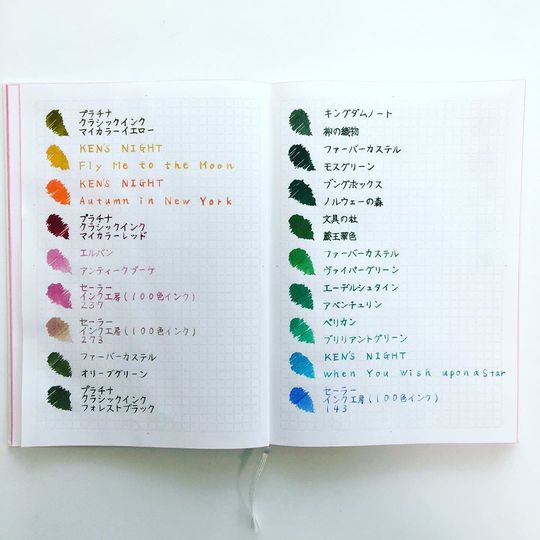 プラチナ
クラシックインク
マイカラーイエロー
KEN'S NIGHT
Fly Me to the Moon
KEN'S NIGHT
Autumn in New York
プラチナ
クラシックインク
マイカラーレッド
エルバン
アンティークブーケ
セーラー
インク工房(100色インク)
237
セーラー
インク工房(100色インク)
273
ファーバーカステル
オリーブグリーン
プラチナ
クラシックインク
フォレストブラック
キングダムノート
柳の織物
ファーバーカステル
モスグリーン
ブングボックス
ノルウェーの森
文具の杜
蔵王翠色
ファーバーカステル
ヴァイパーグリーン
エーデルシュタイン
アベンチュリン
ペリカン
ブリリアントグリーン
KEN'S NIGHT
when You Wish upon a Star
セーラー
インク工房(100色インク)
143